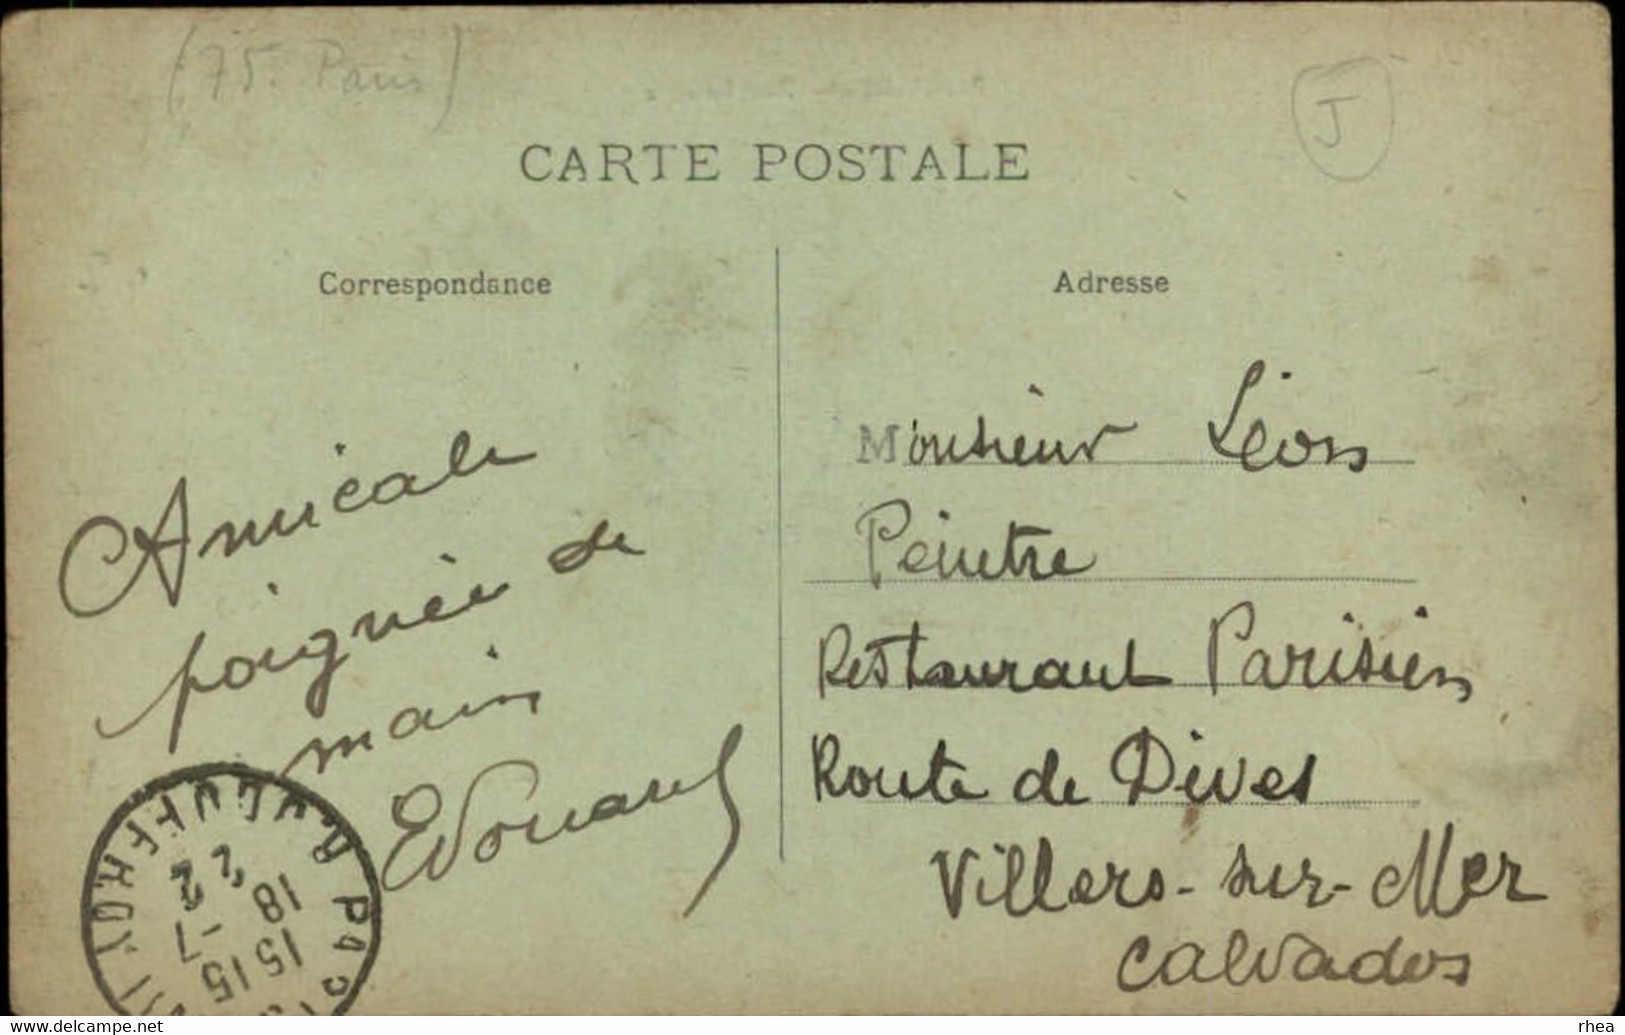 (75. Paris)
J
CARTE POSTALE
Correspondance
Adresse
Amicale
poignée de
main
Edouard
Monsieur Léon
Peintre
Restaurant Parisien
Route de Dives
Villers-sur-Mer
Calvados
15 15
18 -7
22
delcampe.net
rhea